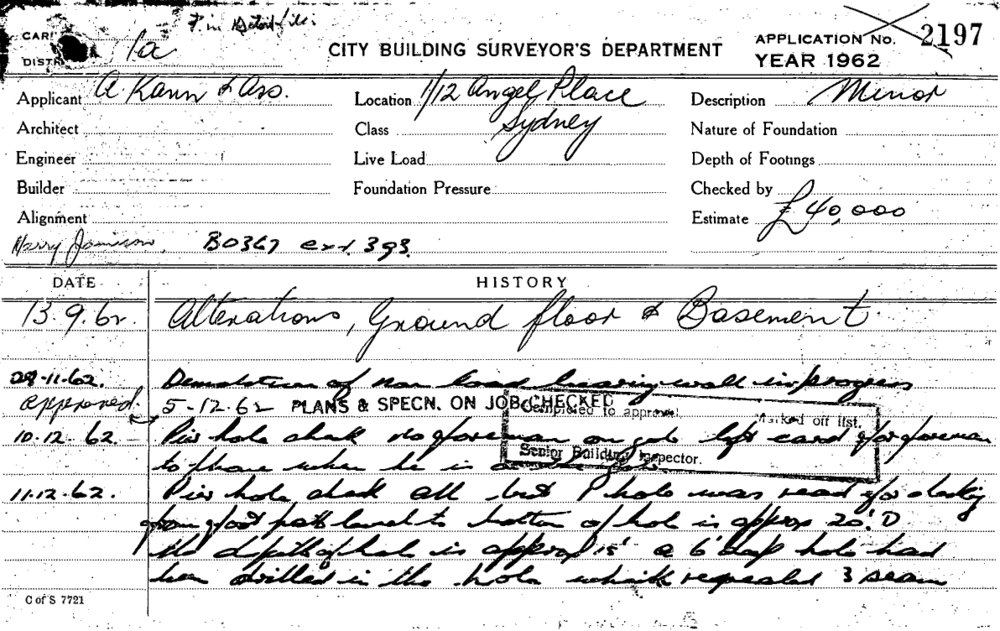 CAR
DISTR
1a
CITY BUILDING SURVEYOR'S DEPARTMENT
APPLICATION No. 2197
YEAR 1962
Applicant A Kann & Ass.
Location 1/12 Angel Place
Sydney
Description Minor
Architect
Class
Nature of Foundation
Engineer
Live Load
Depth of Footings
Builder
Foundation Pressure
Checked by
Alignment
Estimate £40,000
Harry Jamieson B0367 ext 393.
DATE
HISTORY
13.9.62. Alterations, Ground floor & Basement.
28-11-62. Demolition of non load bearing wall in progress
approved. 5-12-62 PLANS & SPECN. ON JOB CHECKED
Completed to approval
Marked off list.
Senior Building Inspector.
10.12.62. Pier hole check No foreman on job left card for foreman
to phone when he is
11.12.62. Pier hole check all but 1 hole was ready for
from foot path level to bottom of hole is approx 20' D
the depth of hole is approx 15' a 6' deep hole had
been drilled in the hole which revealed 3 seam
C of S 7721